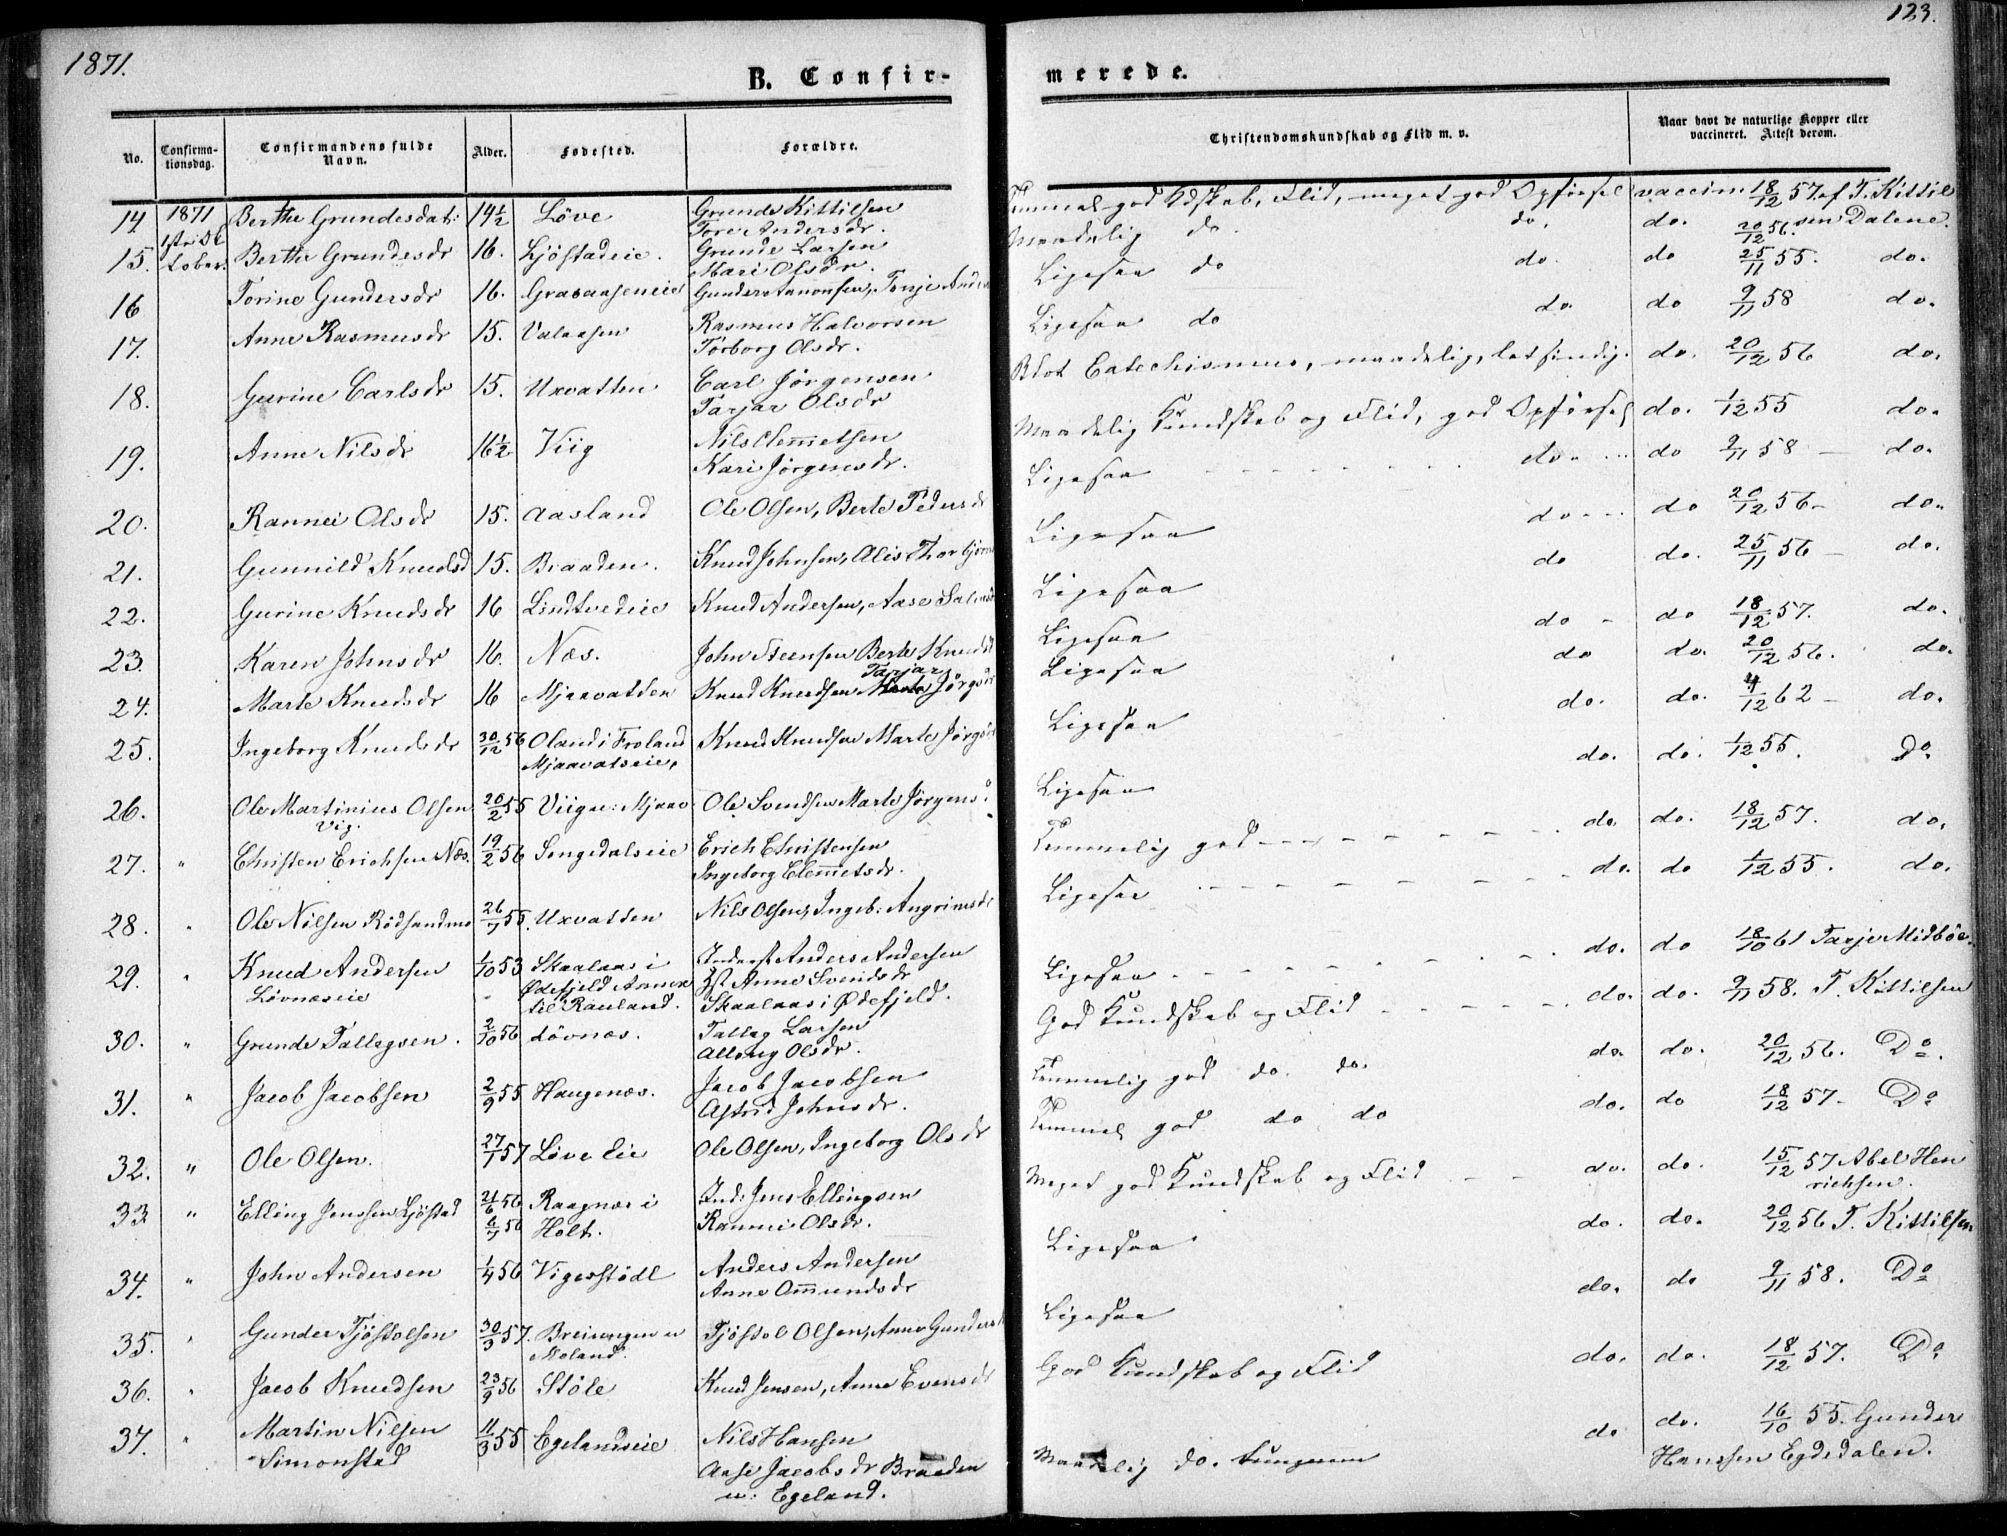 1871.
123.
B. Confir-
merede.
No.
Confirma-
tionsdag.
Confirmandens fulde
Navn.
Alder.
Fødested.
Forældre.
Christendomskundskab og Flid m. v.
Naar havt de naturlige Kopper eller
vaccineret. Attest derom.
14 1871 Berthe Grundesdat: 14½ Löve Grunde Kittilsen
Tore Andersdr.
Temmel. god Kdskab, Flid, meget god Opførsel vaccin. 18/12 57 af T. Kittil
sen Dalene.
15. Berthe Grundesdr 16. Ljöstadeie. Grunde Larsen
Mari Olsdr.
Maadelig do. do. do. 20/12 56.
16 Torine Gundersdr 16. Gunder Aanonsen, Tonje
Ligesaa do do. do 25/11 55. do.
17. Anne Rasmusdr 15. Valaasen Rasmus Halvorsen
Torborg Olsdr.
Ligesaa do do. do 9/11 58 do.
18. Gurine Carlsdr 15. Uxvatten Carl Jörgensen
Tarjar Olsdr
Blot Catechismus, maadelig, letsindig. do. 20/12 56 do.
19. Anne Nilsdr 16½ Viig Nils Clemmetsen
Kari Jörgensdr.
Maadelig Kundskab og Flid, god Opførsel do. 1/12 55 do.
20. Rannei Olsdr 15. Aasland Ole Olsen, Berte Pedersdr
Ligesaa do. do 9/11 58 do.
21. Gunnild Knudsd 15. Braaden. Knud Johnsen, Alis Thorbjörns
Ligesaa do do 20/12 56 do.
22. Gurine Knudsdr 16 Lindtvedeie Knud Andersen, Aase
Ligesaa do do. 25/11 56 do.
23. Karen Johnsdr 16. Næs. John Steensen Berte Knudsd
Ligesaa do do 18/12 57. do.
24. Marte Knudsdr 16 Mjaavatten Knud Knudsen Tarjar Jörgsdr
Ligesaa do do. 20/12 56. do.
25. Ingeborg Knudsdr 30/12 56 Oland i Froland
Mjaavatseie, Knud Knudsen Marte Jörgsd
Ligesaa do. do. 4/12 62 do.
26. Ole Martinius Olsen
Vig. 20/2 55 Viige: Mjaav. Ole Svendsen Marte Jörgens.
Ligesaa do. do. 1/12 55. Do.
27. " Christen Erichsen Næs. 19/2 56 Songedalseie Erich Christensen
Ingeborg Clemmetsdr.
Temmelig god do. do. 18/12 57. do.
28. " Ole Nilsen Rödsandmo 26/7 55. Uxvatten Nils Olsen, Ingeb: Angrimsdr
Ligesaa do. do 1/12 55. do.
29. " Knud Andersen
Lövnæseie 1/10 53 Skaalaas i
Ødefjeld Annex
til Rauland. Inderst Anders Andersen
Anne Svendsdr
Skaalaas i Ødefjeld.
Ligesaa do. do 18/10 61 Tarje Midböe.
30. " Grunde Tallegsen. 2/10 56 Lövnæs. Talleg Larsen
Olsdr.
God Kundskab og Flid do. do. 9/11 58. T. Kittilsen
31. " Jacob Jacobsen 2/9 55 Haugenæs. Jacob Jacobsen
Astrid Johnsdr.
Temmelig god do. do. do. do. 20/12 56. Do.
32. " Ole Olsen. 27/1 57 Löve Eie Ole Olsen, Ingeborg Olsdr
Temmel. god do do do. do 18/12 57. Do
33 " Elling Jenssen Ljöstad 21/6 56
6/7 56 Raagnæs i
Holt. Ind: Jens Ellingsen
Rannei Olsdr.
Meget god Kundskab og Flid do. do. 15/12 57 Abel Hen
richsen.
34. " John Andersen 1/4 56 Vigesstödl Anders Andersen
Anne Ommundsdr
Ligesaa do. do. 20/12 56 T. Kittilsen
35. " Gunder Tjöstolsen 30/3 57.
Moland. Tjöstol Olsen, Anne Gunders
Ligesaa do. do 9/11 58. Do
36. " Jacob Knudsen 23/9 56 Stöle Knud Jensen, Anne Evensdr
God Kundskab og Flid do. do. 18/12 57. Do
37. " Martin Nielsen
Simonstad 11/3 55 Egelandseie Nils Hansen
Aase Jacobsdr Braaden
u: Egeland.
Maadelig do. do do. 16/10 55. Gunder
Hanssen Egdedalen.